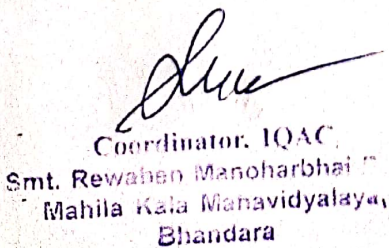 Coordinator. IQAC
Smt. Rewaben Manoharbhai
Mahila Kala Mahavidyalaya,
Bhandara